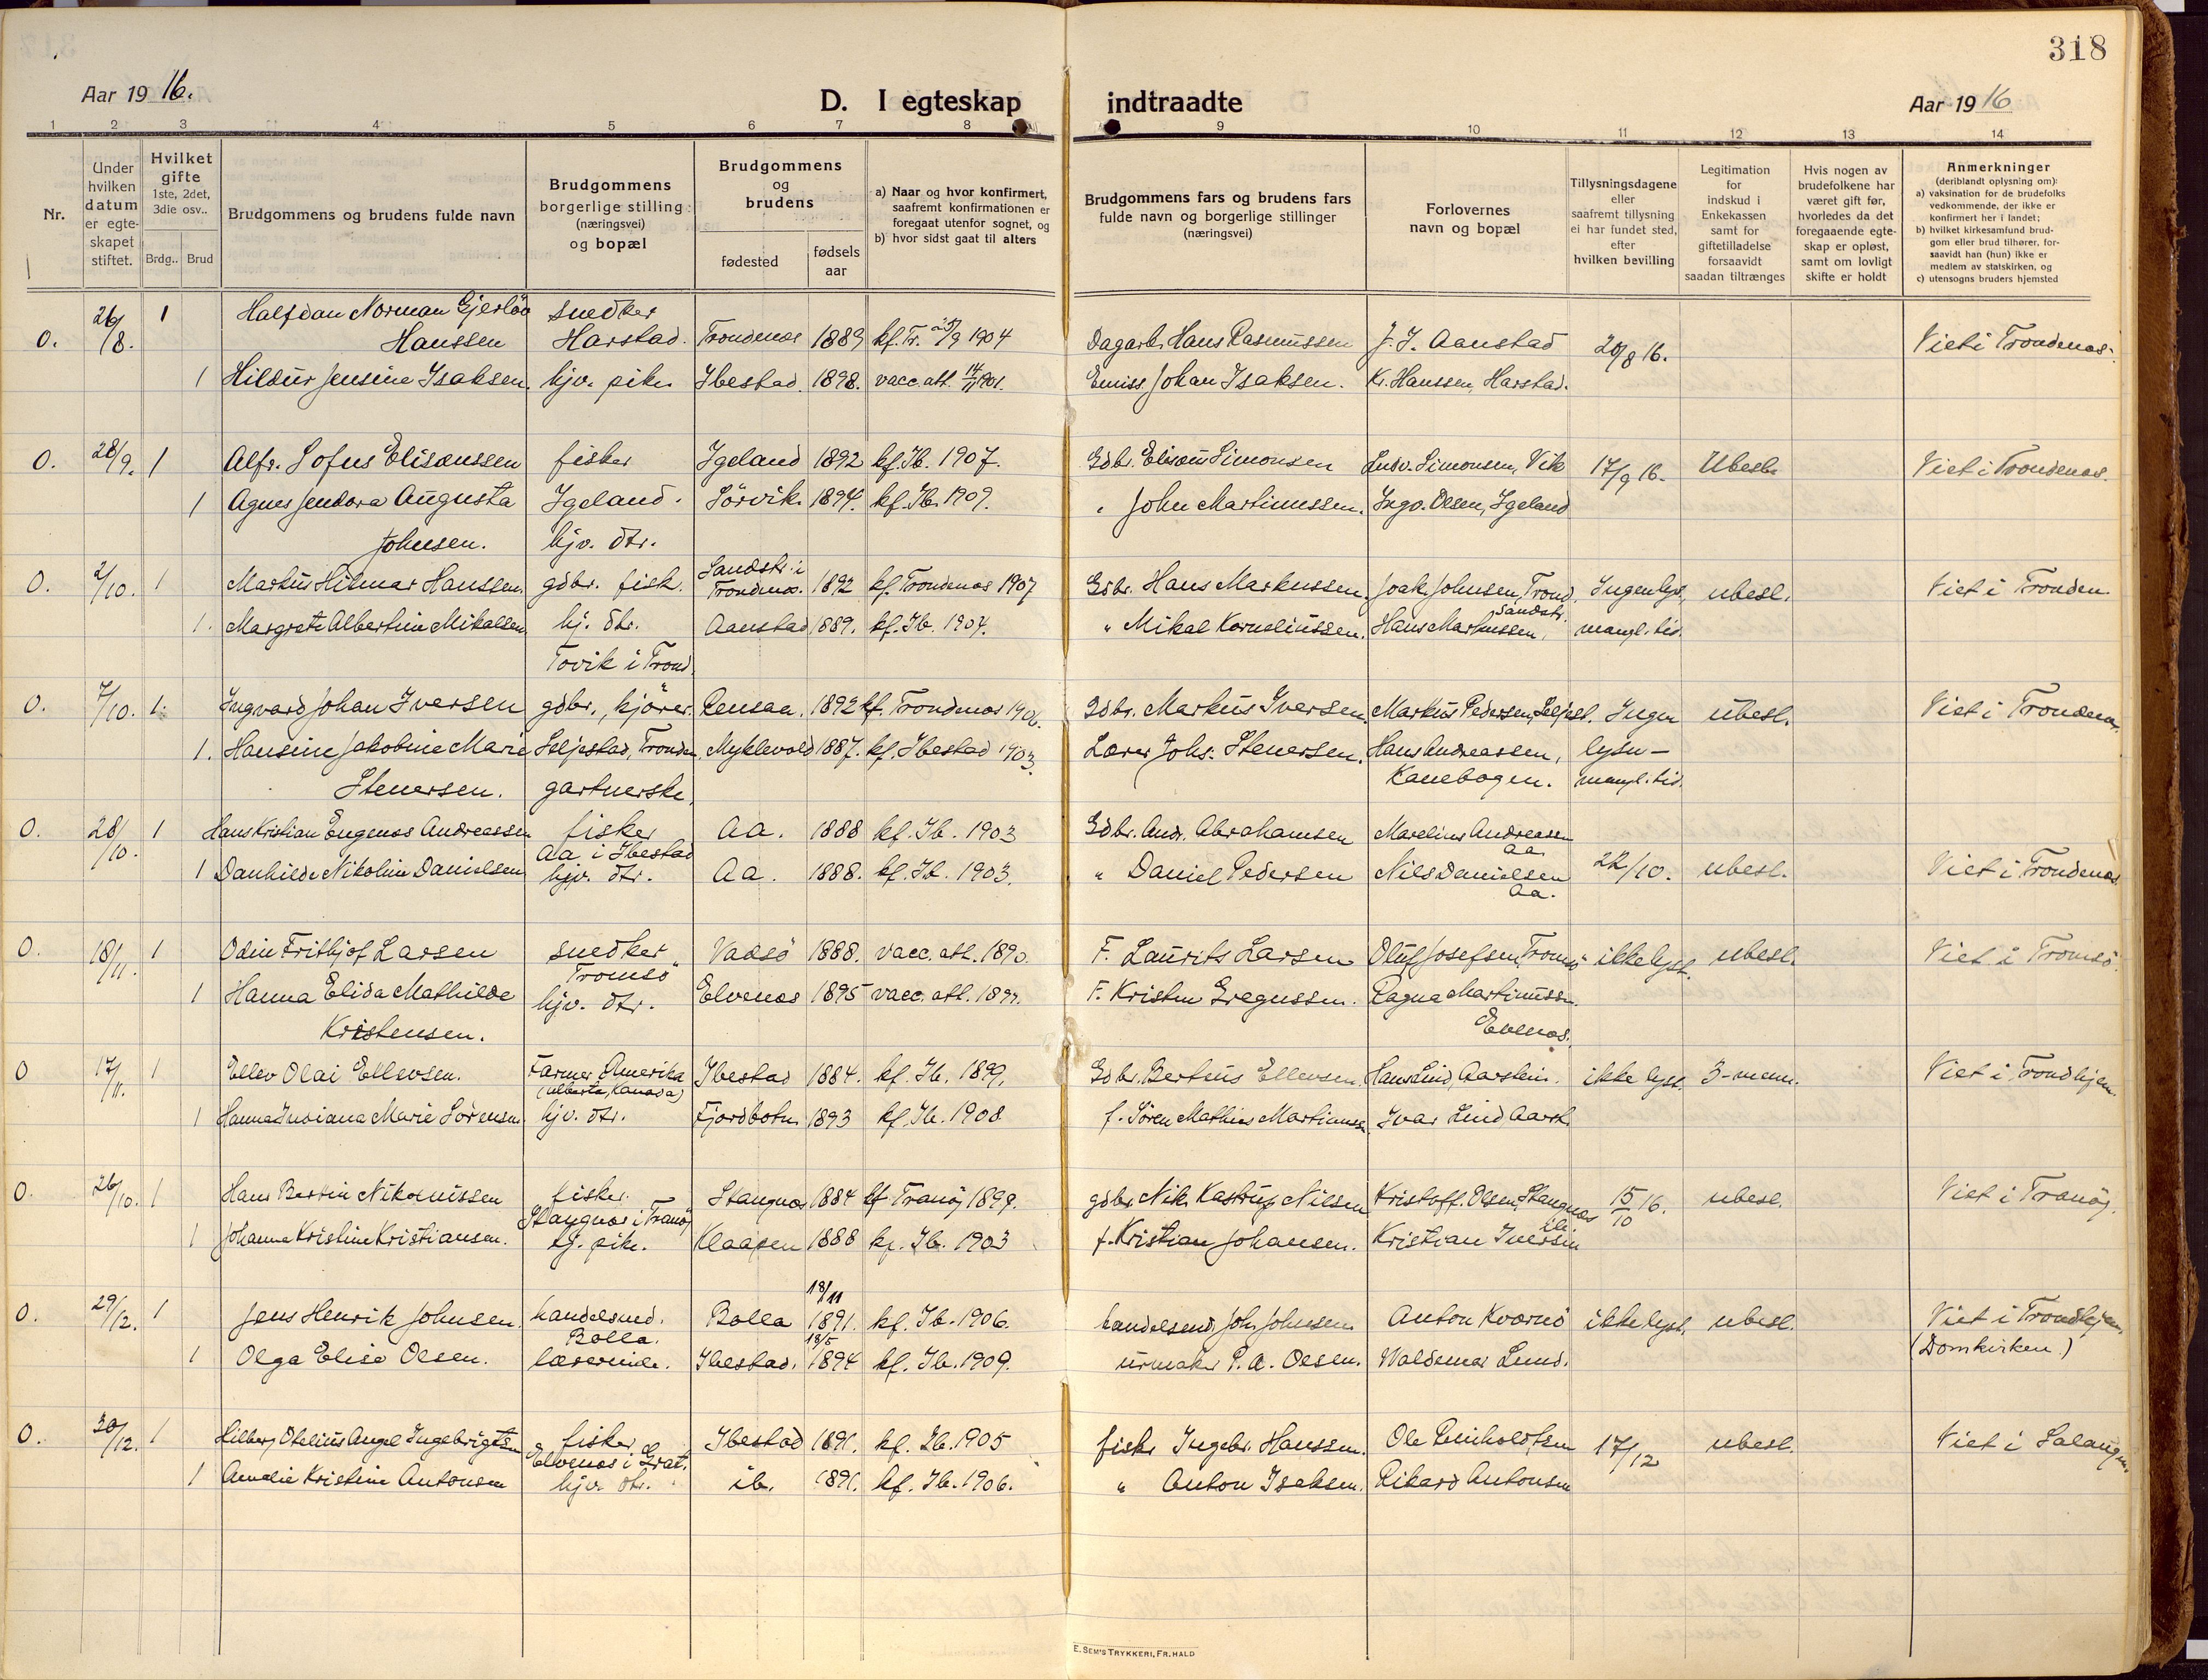 318
Aar 1916.
D. I egteskap indtraadte
Aar 1916
1 2 3 4 5 6 7 8 9 10 11 12 13 14
Nr.
Under hvilken datum er egte-skapet stiftet.
Hvilket gifte 1ste, 2det, 3die osv..
Brdg.. Brud
Brudgommens og brudens fulde navn
Brudgommens borgerlige stilling (næringsvei) og bopæl
Brudgommens og brudens
fødested
fødsels aar
a) Naar og hvor konfirmert, saafremt konfirmationen er foregaat utenfor sognet, og
b) hvor sidst gaat til alters
Brudgommens fars og brudens fars fulde navn og borgerlige stillinger (næringsvei)
Forlovernes navn og bopæl
Tillysningsdagene eller saafremt tillysning ei har fundet sted, efter hvilken bevilling
Legitimation for indskud i Enkekassen samt for giftetilladelse forsaavidt saadan tiltrænges
Hvis nogen av brudefolkene har været gift før, hvorledes da det foregaaende egte-skap er opløst, samt om lovligt skifte er holdt
Anmerkninger
(deriblandt oplysning om):
a) vaksination for de brudefolks vedkommende, der ikke er konfirmert her i landet;
b) hvilket kirkesamfund brud-gom eller brud tilhører, for-saavidt han (hun) ikke er medlem av statskirken, og
c) utensogns bruders hjemsted
0. 26/8. 1 Halfdan Norman Gjerløv snedker
Hanssen Harstad. Trondenes 1889 kf. Tr. 25/9 1904 Dagarb. Hans Rasmussen J. J. Aanstad 20/8 16. Viet i Trondenes.
1 Hildur Jensine Isaksen. hjv. pike Ibestad. 1898. vacc. att. 1901. Emiss. Johan Isaksen. Kr. Hanssen, Harstad.
0. 28/9. 1 Alfr. Sofus Elisæussen fisker Igeland 1892 kf. Ib. 1907. Gdbr. Elisæus Simonsen Ludv. Simonsen, Vik 17/9 16. Ubesl. Viet i Trondenes.
1 Agnes Jendora Augusta Igeland. Sörvik 1894. kf. Ib. 1909. " John Martinussen. Ingv. Olsen, Igeland
Johnsen. hjv. dtr.
0. 2/10. 1 Markus Hilmar Hanssen. gdbr. fisk. Sandstr. i Trondenes. 1892 kf. Trondenes 1907 Gdbr. Hans Markussen. Joak. Johnsen, Trond. Ingen lysn. ubesl. Viet i Tronden.
1. Margrete Albertine Mikalsen hj. dtr. Aanstad 1889. kf. Ib. 1904. " Mikal Korneliussen. Hans Markussen, Sandstr. mangl. tid.
Tovik i Trond.
0. 7/10. 1. Ingvard Johan Iversen gdbr., kjörer. Rensaa. 1892 kf. Trondenes 1906. Gdbr. Markus Iversen. Markus Pedersen, Seljest. Ingen ubesl. Viet i Trondenes.
1. Hansine Jakobine Marie Seljestad, Tronden. Myklevold 1887. kf. Ibestad 1903. Lærer Johs. Stenersen. Hans Andreassen, lysn-
Stenersen. gartnerske. Kanebogen. mangl. tid.
0. 28/10. 1 Hans Kristian Eugenes Andreassen fisker Aa. 1888 kf. Ib. 1903 Gdbr. Andr. Abrahamsen Marelius Andreasen Aa
Aa i Ibestad
1 Danhilde Nikoline Danielsen hjv. dtr. Aa. 1888. kf. Ib. 1903. " Daniel Pedersen Nils Danielsen Aa. 22/10. ubesl. Viet i Trondenes.
0. 18/11. 1 Odin Frithjof Larsen snedker Vadsö 1888. vacc. att. 1890. F. Laurits Larsen Oluf Josefsen, Tromsö ikke lyst. ubesl. Viet i Tromsö
Tromsö
1 Hanna Elida Mathilde hjv. dtr. Elvenes 1895 vacc. att. 1899. F. Kristen Gregussen. Ragna Martinussen.
Kristensen. Elvenes.
0 17/11. 1 Ellev Olai Ellevsen. Farmer Amerika Ibestad 1884. kf. Ib. 1899. Gdbr. Berteus Ellevsen. Hans Lind, Aarstein. ikke lyst. 3-menn. Viet i Trondhjem.
(Alberta, Kanada)
1 Hanna Indiana Marie Sörensen hjv. dtr. Fjordbotn 1893 kf. Ib. 1908 f. Sören Mathias Martinussen Ivar Lind Aarst.
0. 26/10. 1 Hans Bertin Nikolaissen fisker. Stangnes 1884 kf. Tranöy 1899. gdbr. Nik. Kastrup Nilsen Kristoff. Olsen, Stangnes 15/10 16. ubesl. Viet i Tranöy.
Stangnes i Tranöy
1 Johanna Kristine Kristiansen. hj. pike. Klaapen 1888 kf. Ib. 1903 f. Kristian Johansen. Kristian Iversen ib.
18/11
0. 29/12. 1 Jens Henrik Johnsen. handelsmd. Bolla 1891. kf. Ib. 1906. handelsmd. Joh. Johnsen Anton Kværnö ikke lyst. ubesl. Viet i Trondhjem.
Bolla. 18/5
1 Olga Elise Olsen. lærerinde. Ibestad. 1894 kf. Ib. 1909. urmaker P. A. Olsen. Waldemar Lund. (Domkirken.)
0. 30/12. 1 Hilberg Otelius Angel Ingebrigtsen fisker Ibestad 1891. kf. Ib. 1905 fisker Ingebr. Hanssen. Ole Reinholdtsen 17/12 ubesl. Viet i Salangen.
Elvenes i Grat.
1 Amalie Kristine Antonsen hjv. dtr. ib. 1891. kf. Ib. 1906. " Anton Isaksen. Rikard Antonsen
E. SEM'S TRYKKERI, FR.HALD